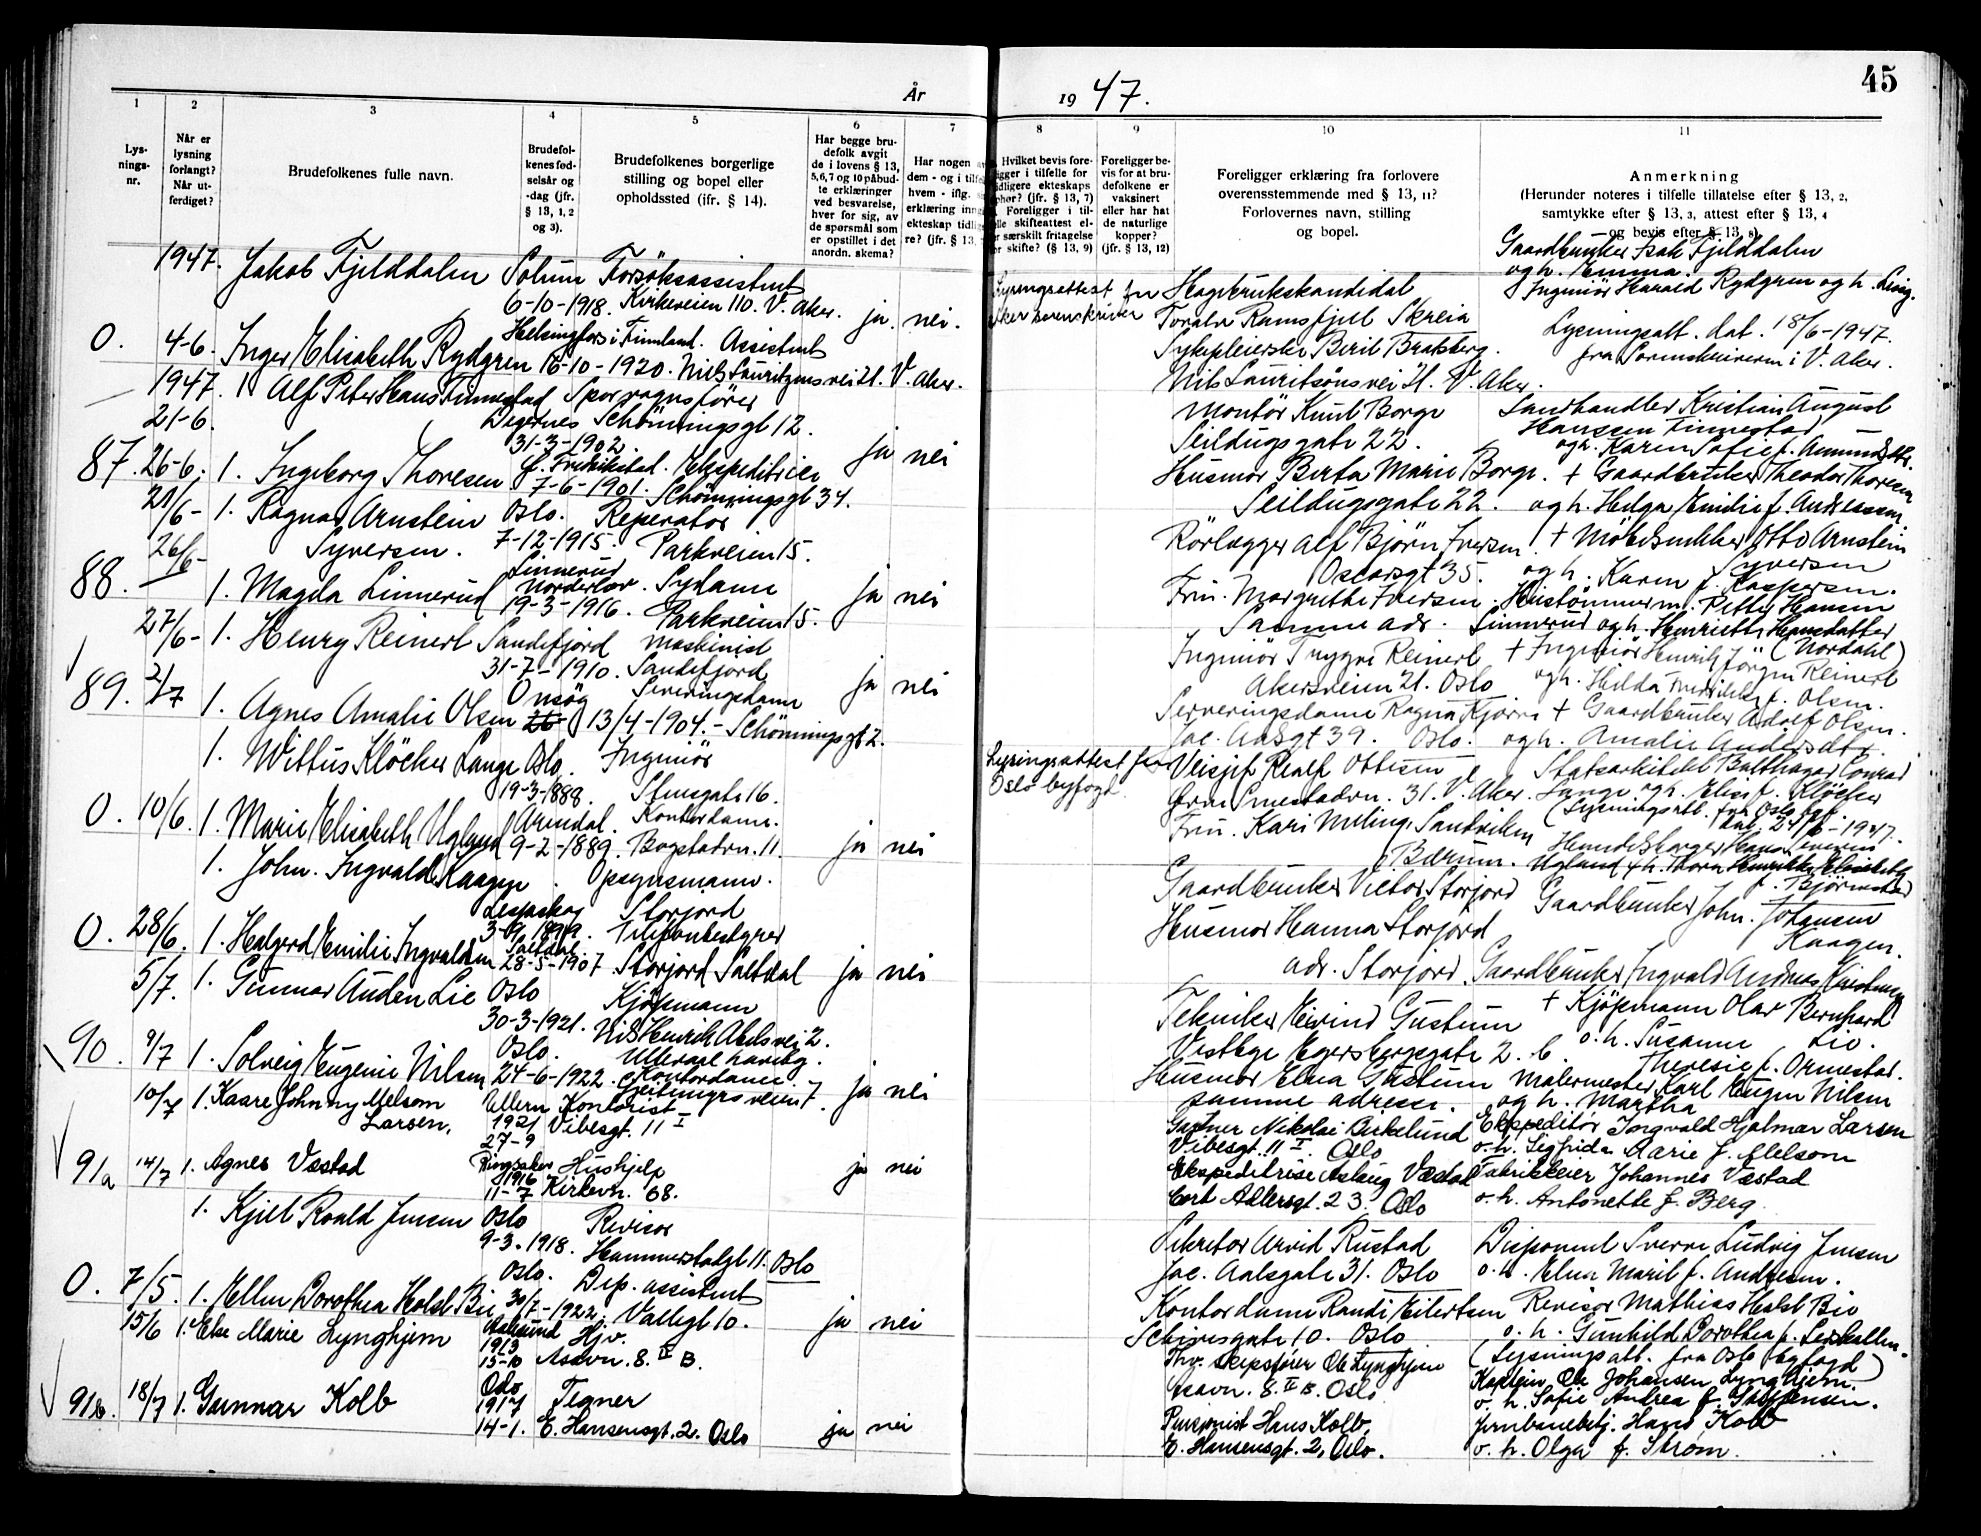 År
19 47.
45
1
2
3
4
5
6
7
8
9
10
11
Lys-
nings-
nr.
Når er
lysning
forlangt?
Når ut-
ferdiget?
Brudefolkenes fulle navn.
Brudefol-
kenes fød-
selsår og
-dag (jfr.
§ 13, 1, 2
og 3).
Brudefolkenes borgerlige
stilling og bopel eller
opholdssted (ifr. § 14).
Har begge bru-
defolk avgit
de i lovens § 13,
5, 6, 7 og 10 påbud-
te erklæringer
ved besvarelse,
hver for sig, av
de spørsmål som
er opstillet i det
anordn. skema?
Har nogen
dem - og i
hvem - iflg.
erklæring
ekteskap
re? (jfr. § 13,
Hvilket bevis fore-
i tilfelle for
ekteskaps
(jfr. § 13, 7)
Foreligger i til-
skifteattest el-
særskilt fritagelse
skifte? (§ 13, 9)
Foreligger be-
vis for at bru-
defolkene er
vaksinert
eller har hat
de naturlige
kopper?
(jfr. § 13, 12)
Foreligger erklæring fra forlovere
overensstemmende med § 13, 11?
Forlovernes navn, stilling
og bopel.
Anmerkning
(Herunder noteres i tilfelle tillatelse efter § 13, 2,
samtykke efter § 13, 3, attest efter § 13, 4
og bevis efter § 13, 8).
1947. Jakob Fjelddalen Solum Forsöksassistent
6-10-1918. Kirkeveien 110. V. Aker. ja. nei.
Hagebrukskandidat
Skreia
Gaardbruker Isak Fjelddalen
og h. Emma.
O. 4-6. Inger Elisabeth Rydgren Helsingfors i Finnland. Assistent
16-10-1920. Nils Lauritzens vei 21. V. Aker.
Sykepleierske Berit Bratsberg.
Nils Lauritsöns vei 21. V. Aker.
Ingeniör Harald Rydgren og h.
Lysningsatt. dat. 18/6-1947.
fra Sorenskriveren i V. Aker.
1947. 1. Alf Peter Hans Finnestad Sporvognsförer
21-6. Schönningsgt 12.
31-3-1902. ja nei
Montör Knut Borge
Seildugsgate 22.
Landhandler Kristian August
Hanssen Finnestad
87. 26-6. 1. Ingeborg Thoresen Fredrikstad. Ekspeditrice
7-6-1901. Schönningsgt 34.
Husmor Berta Marie Borge.
Seildugsgate 22.
+ Gaardbruker Theodor Thoresen
og h. Helga Emilie f. Andersen
21/6- 1. Ragnar Arnstein Oslo. Reperatör
Syversen. 7-12-1915. Parkveien 15.
Rörlegger Alf Björn Iversen.
Oscarsgt 35.
+ Möbelsnekker Otto Arnstein
Syversen
og h. Karen f. Kaspersen.
88. 26/6- 1. Magda Linnerud Linnerud Nordertov. Sydame
19-3-1916. Parkveien 15. ja nei
Fru. Margrethe Iversen.
Samme adr.
Petter Hansen
Linnerud og h. Henriette Hansdatter
(Nordahl)
27/6- 1. Henry Reinert Sandefjord Maskinist
31-7-1910. Sandefjord ja nei
Ingeniör Trygve Reinert
Akersveien 21. Oslo
+ Ingeniör Henrik Jörgen Reinert
og h. Hilda Fredrikke f. Olsen.
89. 2/7 1. Agnes Amalie Olsen Onsöy Serveringsdame
13/4-1904. - Schönningsgt 2.
Serveringsdame Ragna Kjorre
Jac. Aalsgt 39. Oslo.
+ Gaardbruker Adolf Olsen.
og h. Amalie Andersdtr.
1. Wittus Klöcker Lange Oslo. Ingeniör
19-3-1888. Stensgate 16.
Lysningsattest fra
Oslo byfogd.
Veisjef Realf Ottesen
Örn Smestadvn. 31. V. Aker.
Statsarkitekt Balthazar Conrad
Lange og h. Elise f. Klöcker
(Lysningsatt. fra Oslo byf.
dat. 24/6-1947.
O. 10/6. 1. Marie Elisabeth Ugland Arendal. Kontordame.
9-2-1889. Bogstadvn. 11. ja nei
Fru. Kari Meling, Sandviken
Bærum.
f. Bjørnstad
1. John. Ingvald Kaagen. Opsynsmann.
Storjord
Gaardbruker Victor Storjord
Gaardbruker John. Johansen
Kaagen.
O. 28/6. 1. Halgerd Emilie Ingvaldsen Saltdal. Telefonbestyrer
28-5-1907 Storjord Saltdal ja nei
Husmor Hanna Storjord
adr. Storjord.
Gaardbruker Ingvald Andreas
5/7. 1. Gunnar Auden Lie Oslo Kjöpmann
30-3-1921. Nils Henrik Abels vei 2.
Ullevaal haveby.
Tekniker Eivind Gustum
Vestbye Egersbergsgate 2. b.
+ Kjöpmann Olav Bernhard
Lie.
o. h. Susanne
Theresie f. Ormestad.
90. 9/7 1. Solveig Eugenie Nilsen Oslo. Kontordame
24-6-1922. Geitmyrsveien 7. ja nei
Husmor Elna Gustum
samme adresse.
Malermester Karl Eugen Nilsen
og h. Martha
10/7 1. Kaare Johnny Melsom Kontorist
Larsen. 1921 Vibesgt. 11 I
27-9
Gartner Nikolai Birkelund
Vibesgt. 11 I. Oslo
Ekspeditør Ingvald Hjalmar Larsen
o. h. Sigfrida Marie f. Melsom
91a 14/7 1. Agnes Væstad Ringsaker Hushjelp
1916
11-7 Kirkevn. 68. ja nei
Ekspeditrise Aslaug Væstad
Cort Adlersgt. 23. Oslo
Fabrikkeier Johannes Væstad
o. h. Antonette f. Berg
1. Kjell Roald Jensen Oslo Revisor
9-3-1918. Hammerstadgt 11. Oslo
Sekretær Arvid Rustad
Jac. Aalsgate 31. Oslo
Disponent Sverre Ludvig Jensen
o. h. Elna Marit f. Andresen.
O. 7/5. 1. Ellen Dorothea Holst Bie Oslo. Dep. assistent
30/7-1922. Vallegt 10. ja nei
Kontordame Randi Eilertsen
Schivesgate 10. Oslo
Revisor Mathias Holst Bie
o. h. Gunhild Dorothea f.
(Lysningsatt. fra Oslo byfogd)
15/6 1. Else Marie Lynghjem Aalesund Hjv.
1913
15-10 Asavn. 8. II B.
Thv. skipsfører Ole Lynghjem
Asavn. 8. II B. Oslo
Kaptein Ole Johansen Lynghjem.
o. h. Sofie Andrea f.
91b. 18/7 1. Gunnar Kolb Oslo Tegner
1917
14-1. E. Hansensgt. 2. Oslo ja nei
Pensjonist Hans Kolb,
E. Hansensgt. 2, Oslo.
Jernbanebetj. Hans Kolb
o. h. Olga f. Strøm.